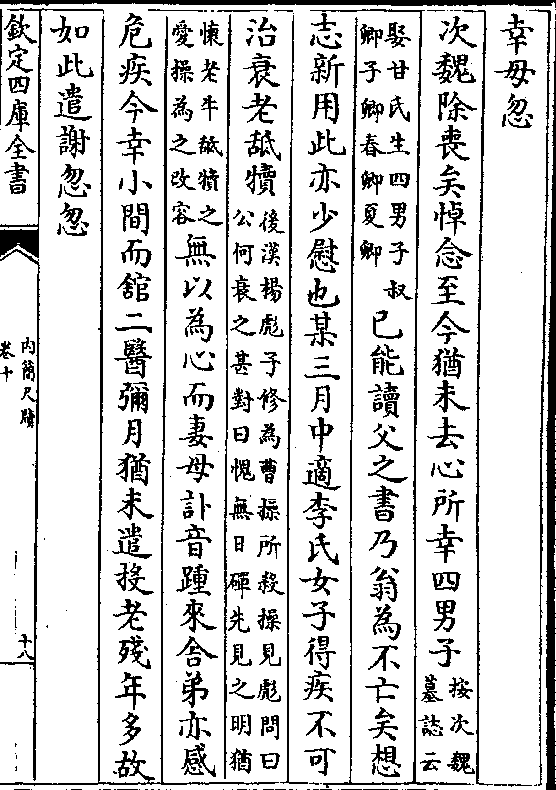 幸毋忽
次魏除喪矣悼念至今猶未去心所幸四男子按次魏墓誌云
娶甘氏生四男子叔卿子卿春卿夏卿已能讀父之書乃翁為不亡矣想
志新用此亦少慰也某三月中適李氏女子得疾不可
治衰老舐犢後漢楊彪子修為曹操所殺操見彪問曰公何衰之甚對曰愧無日磾先見之明猶
懐老牛舐犢之愛操為之改容無以為心而妻母訃音踵來舍弟亦感
危疾今幸小間而舘二醫彌月猶未遣投老殘年多故
如此遣謝忽忽
欽定四庫全書
內簡尺牘
卷十
十八